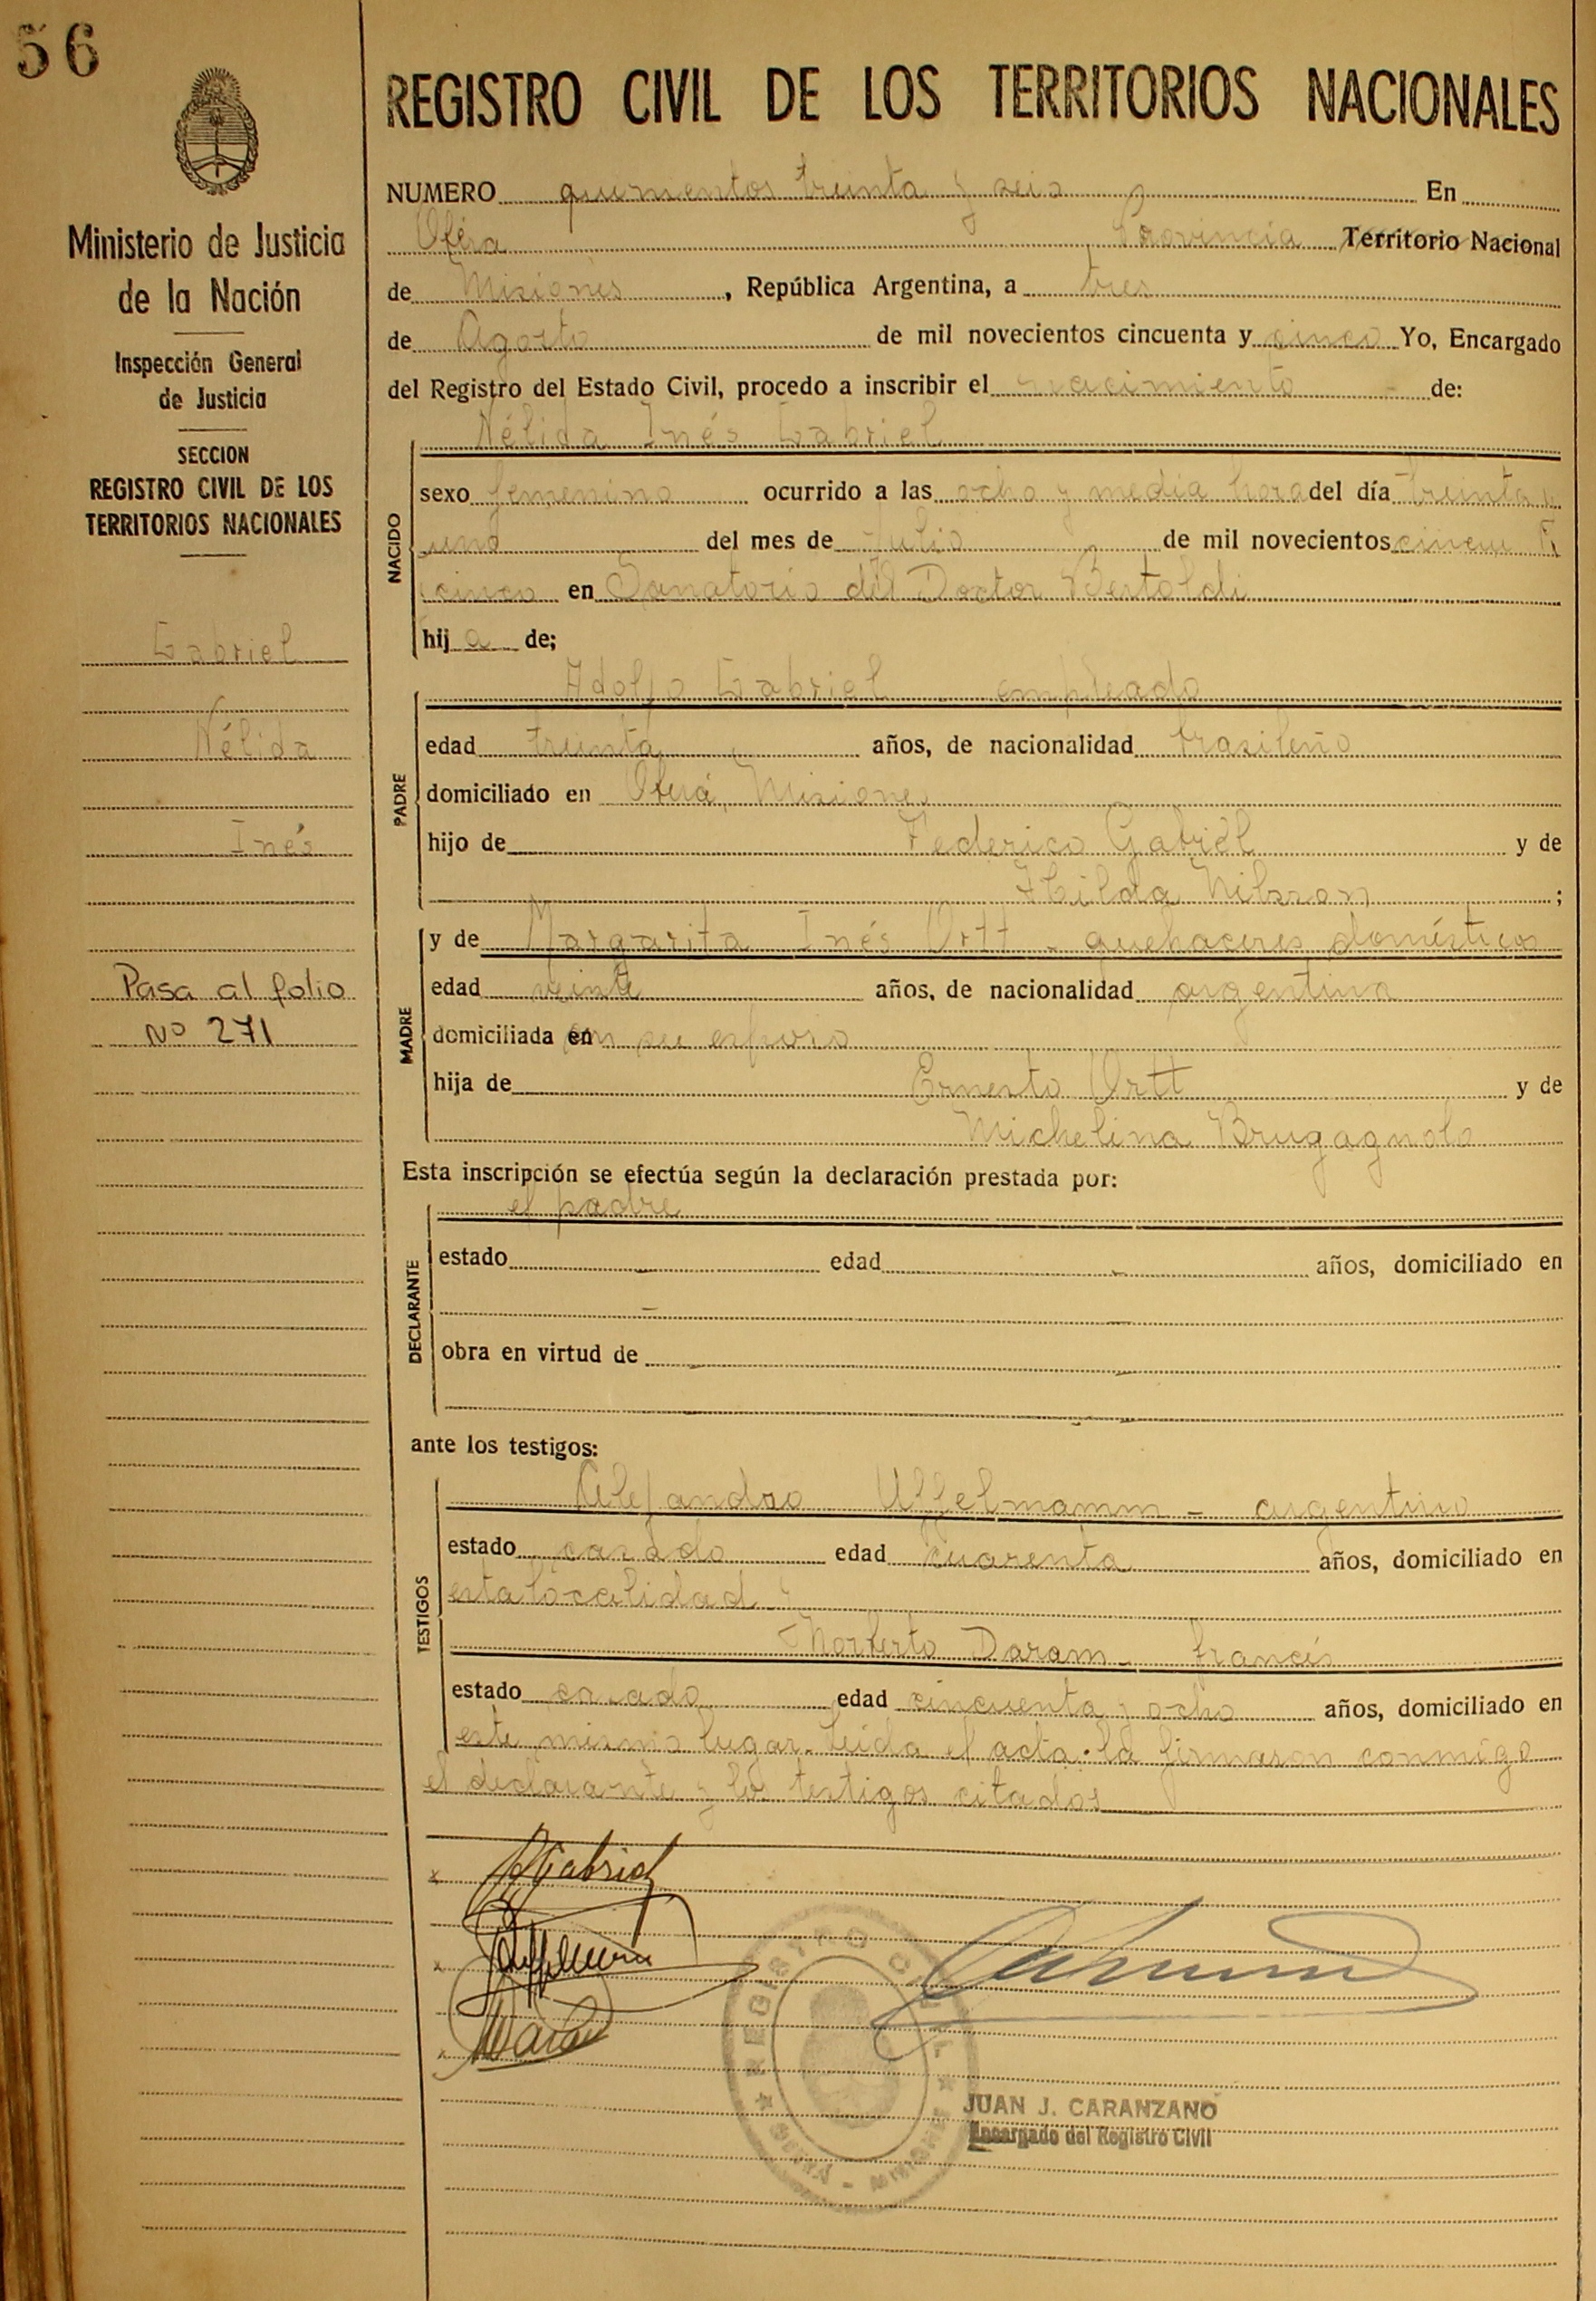 56
REGISTRO CIVIL DE LOS TERRITORIOS NACIONALES
Ministerio de Justicia
de la Nación
Inspección General
de Justicia
SECCION
REGISTRO CIVIL DE LOS
TERRITORIOS NACIONALES
Gabriel
Nélida
Inés
Pasa al folio
Nº 271
NUMERO quinientos treinta y seis En
Oberá Provincia Territorio Nacional
de Misiones, República Argentina, a tres
de Agosto de mil novecientos cincuenta y cinco Yo, Encargado
del Registro del Estado Civil, procedo a inscribir el nacimiento de:
Nélida Inés Gabriel
NACIDO
sexo femenino ocurrido a las ocho y media hora del día treinta y
uno del mes de Julio de mil novecientos
cinco en Sanatorio del Doctor Bertoldi
hija de;
PADRE
Adolfo Gabriel empleado
edad treinta años, de nacionalidad brasileño
domiciliado en Oberá, Misiones
hijo de Federico Gabriel y de
Hilda Nilsson ;
MADRE
y de Margarita Inés Ortt - quehaceres domésticos
edad veinte años, de nacionalidad argentina
domiciliada en su esposo
hija de Ernesto Ortt y de
Michelina Brugagnolo
Esta inscripción se efectúa según la declaración prestada por:
el padre
DECLARANTE
estado - edad - años, domiciliado en
obra en virtud de
ante los testigos:
TESTIGOS
Alejandro Uffelmann - argentino
estado casado edad cuarenta años, domiciliado en
esta localidad
Norberto Daram - francés
estado casado edad cincuenta y ocho años, domiciliado en
este mismo lugar. Leída el acta la firmaron conmigo
el declarante y los testigos citados
x AGabriel
REGISTRO CIVIL
OBERA - MISIONES
JUAN J. CARANZANO
Encargado del Registro Civil